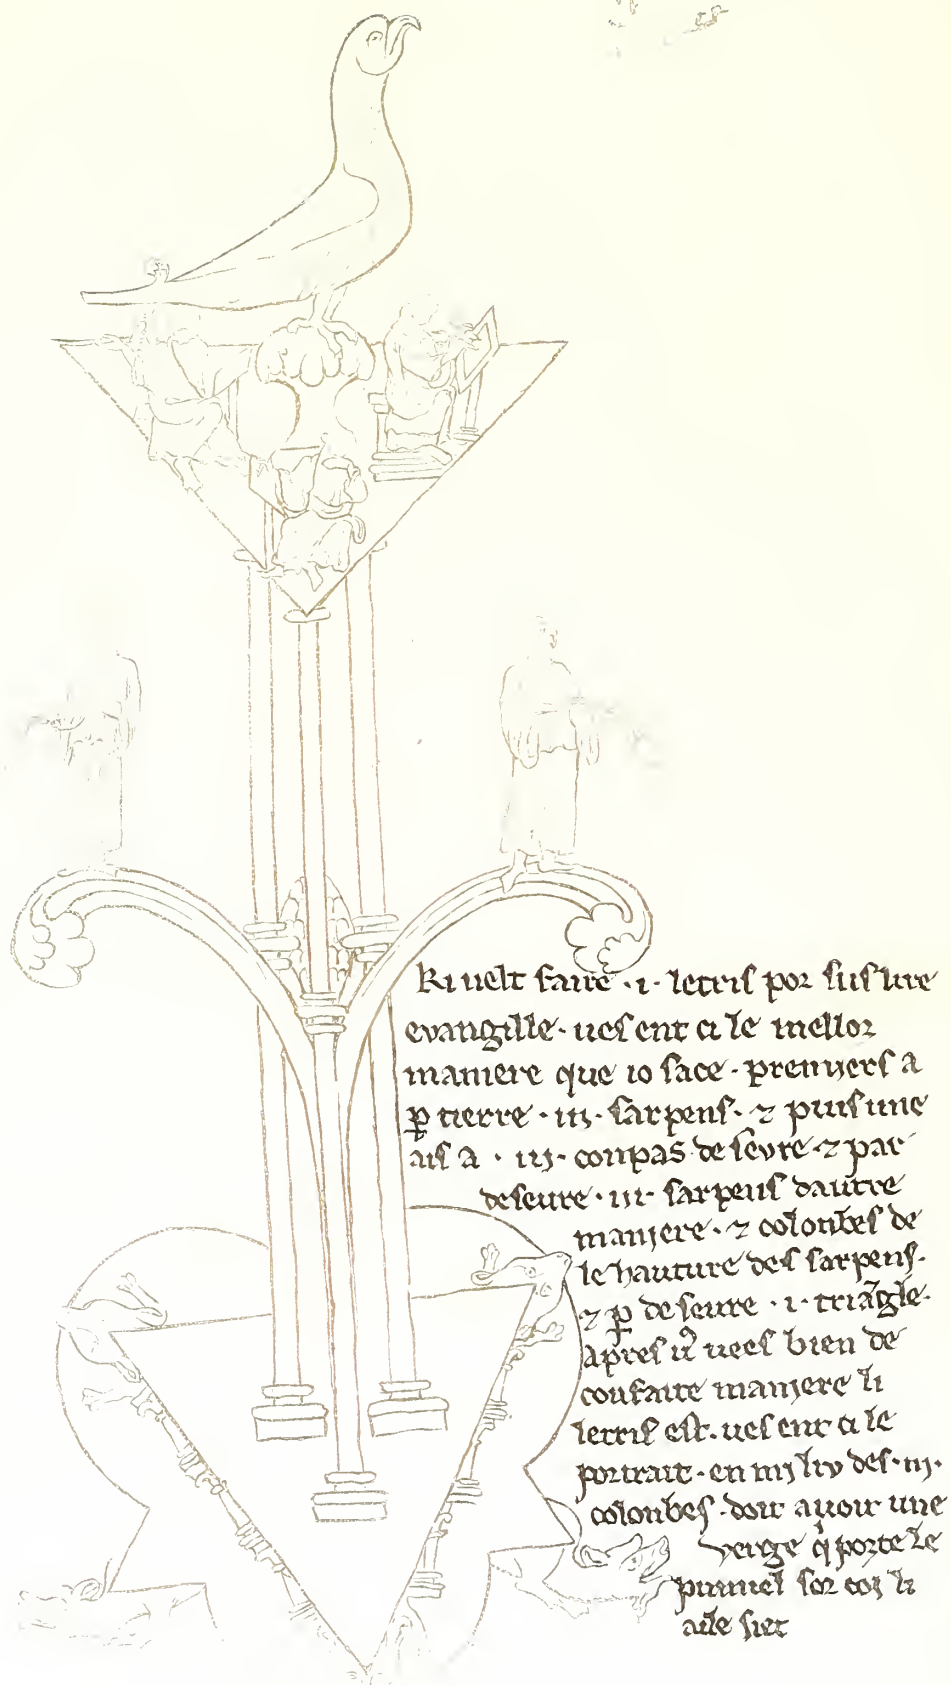 Ki uelt faire ·i· letris por sus lire
evangille· ues ent ci le mellor
maniere que io face· premiers a
p̱ tierre ·iij· sarpens· ⁊ puis une
ais a ·iij· conpas deseure ⁊ par
deseure ·iij· sarpens dautre
maniere· ⁊ colonbes de
le hauture des sarpens·
⁊ p̱ deseure ·i· triāgle·
apres u᷑ uees bien de
confaite maniere li
letris est· ues ent ci le
portrait· en mi liv des ·iij·
colonbes· doit auoir une
verge q̇ porte le
pumel sor coi li
aile siet